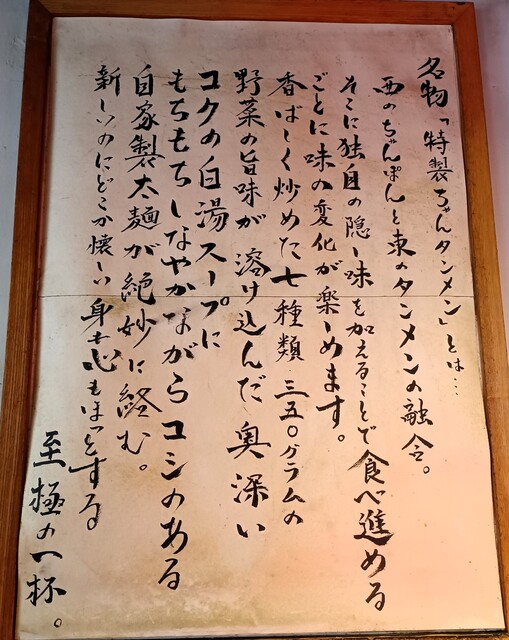 名物「特製ちゃんタンメン」とは…
西のちゃんぽんと東のタンメンの融合。
そこに独自の隠し味を加えることで食べ進める
ごとに味の変化が楽しめます。
香ばしく炒めた七種類 三五〇グラムの
野菜の旨味が 溶け込んだ奥深い
コクの白湯スープに
もちもちしなやかながらコシのある
自家製太麺が絶妙に絡む。
新しいのにどこか懐かしい 身も心もほっとする
至極の一杯。